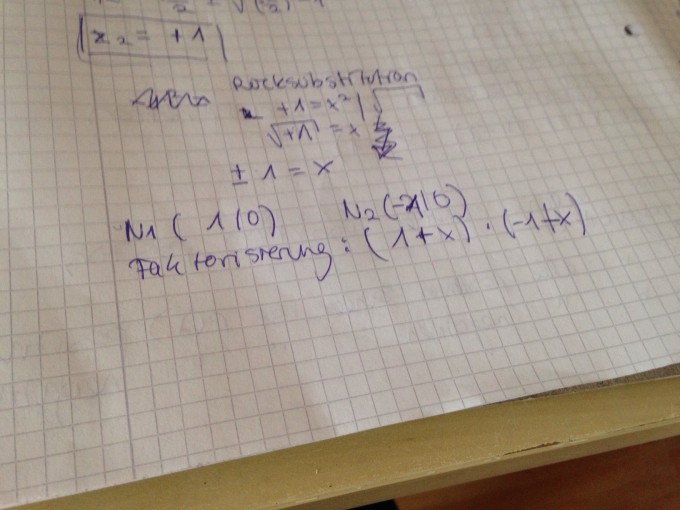 x₂ = +1
Rücksubstitution
+1 = x² | √
√+1 = x
± 1 = x
N1 ( 1 | 0) N2 (-1 | 0)
Faktorisierung : ( 1 + x) · (-1 + x)